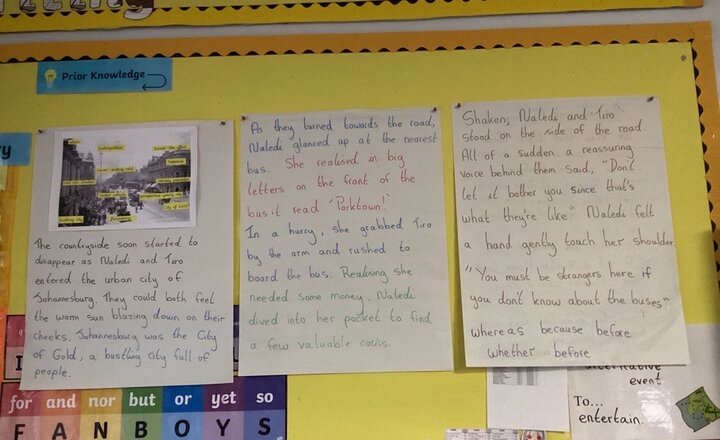 Prior Knowledge
City of Gold
bustling city
The countryside soon started to
disappear as Naledi and Tiro
entered the urban city of
Johannesburg. They could both feel
the warm sun blazing down on their
cheeks. Johannesburg was the City
of Gold, a bustling city full of
people.
As they turned towards the road,
Naledi glanced up at the nearest
bus. She realised in big
letters on the front of the
bus it read 'Parktown!'
In a hurry, she grabbed Tiro
by the arm and rushed to
board the bus. Realising she
needed some money, Naledi
dived into her pocket to find
a few valuable coins.
Shaken, Naledi and Tiro
stood on the side of the road
All of a sudden a reassuring
voice behind them said, "Don't
let it bother you since that's
what they're like." Naledi felt
a hand gently touch her shoulder
"You must be strangers here if
you don't know about the buses."
whereas because before
whether before
for and nor but or yet so
F A N B O Y S
alternative
event
To...
entertain.